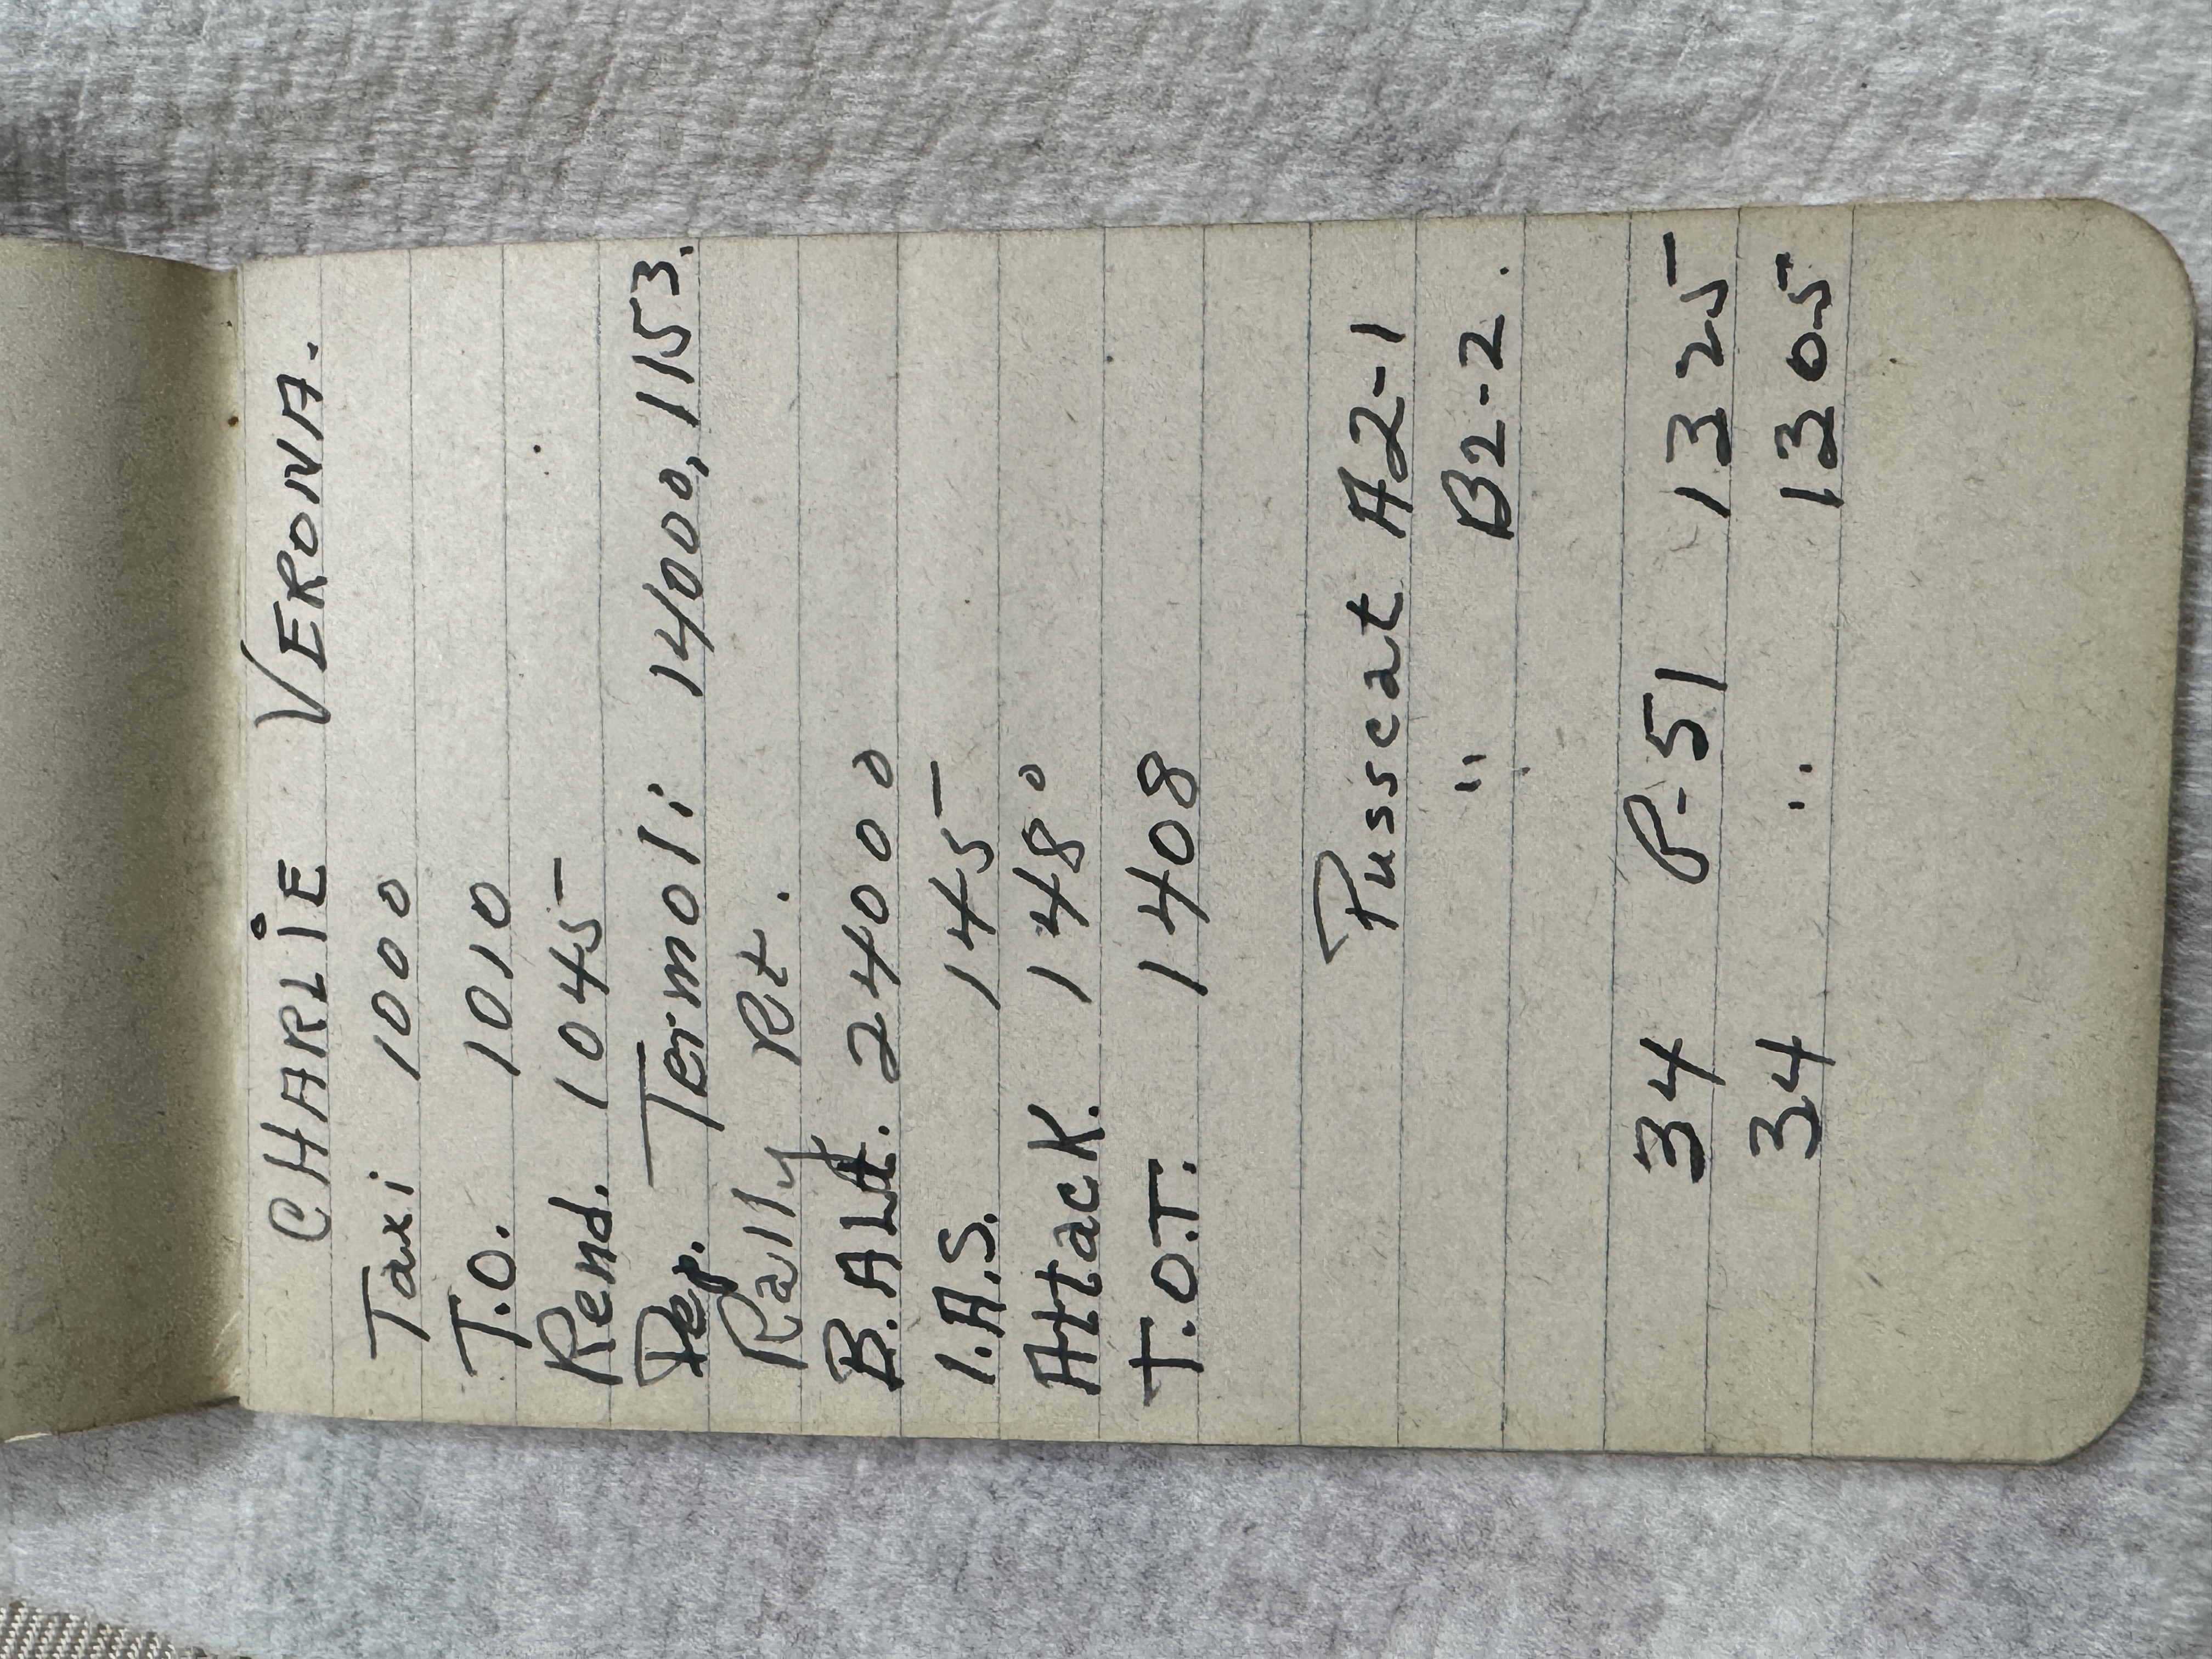 CHARLIE VERONA.
Taxi 1000
T.O. 1010
Rend. 1045
Dep. Termoli 14000, 1153.
Rally Rt.
B. Alt. 24000
I.A.S. 145
Attack. 148°
T.O.T. 1408
Pusscat A2-1
" B2-2.
34 P-51 1325
34 " 1305